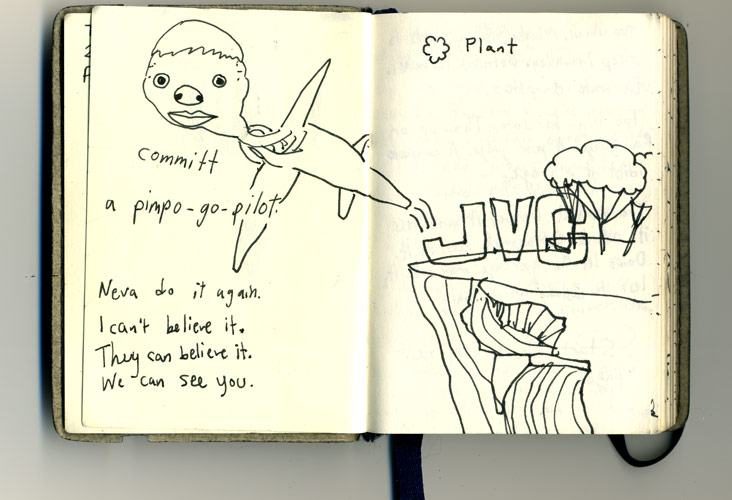 committ
a pimpo-go-pilot.
Neva do it again.
I can't believe it.
They can believe it.
We can see you.
Plant
JVC